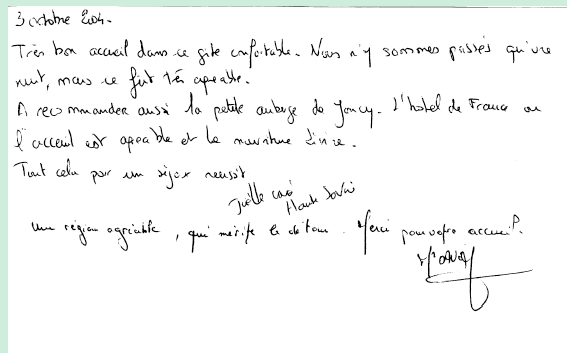 3 octobre 2004.
Très bon accueil dans ce gite confortable. Nous n'y sommes passés qu'une
nuit, mais ce fut très agréable.
A recommander aussi la petite auberge de Joncy. L'hotel de France ou
l'acceuil est agréable et la nourriture divine.
Tout cela pour un séjour reussit
Joëlle
Haute Savoie
une région agréable, qui mérite le détour. Merci pour votre accueil.